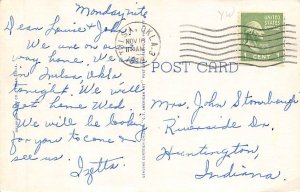 Monday nite
Dear Louise & John,
We are on our
way home. We are
in Tulsa, Okla
tonight. We will
get home Wed.
We will be looking
for you to come on
see us.
Izetta
OKLA.
NOV 18
11 30 AM
POST CARD
UNITED STATES
POSTAGE
1 CENT 1
Mrs. John Stombaugh
Riverside Dr.
Huntington,
Indiana.